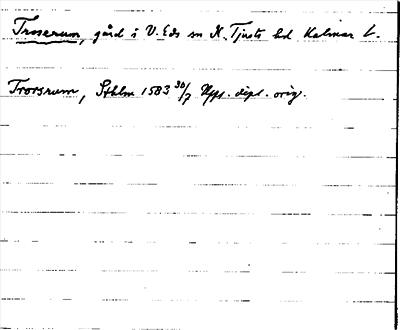 Troserum, gård i V. Eds sn N. Tjusts hd Kalmar l.
Trorsrum, Sthlm 1583 30/7 Uppl. dipl. orig.